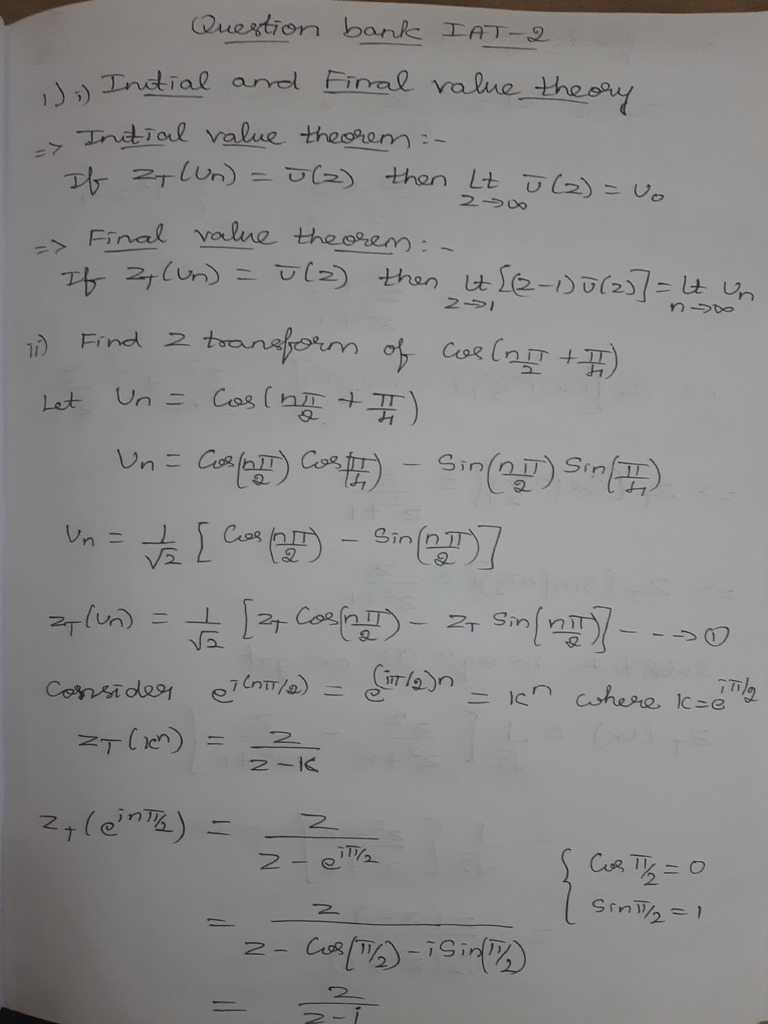 Question bank IAT-2
1) i) Initial and Final value theory
=> Initial value theorem :-
If Z_T(Un) = ū(z) then Lt_{z→∞} ū(z) = U₀
=> Final value theorem :-
If Z_T(Un) = ū(z) then Lt_{z→1} [(z-1) ū(z)] = Lt_{n→∞} Un
ii) Find Z transform of Cos(nπ/2 + π/4)
Let Un = Cos(nπ/2 + π/4)
Un = Cos(nπ/2) Cos(π/4) - Sin(nπ/2) Sin(π/4)
Un = 1/√2 [Cos(nπ/2) - Sin(nπ/2)]
Z_T(Un) = 1/√2 [Z_T Cos(nπ/2) - Z_T Sin(nπ/2)] - - -> ①
Consider e^{i(nπ/2)} = e^{(iπ/2)n} = K^n where K = e^{iπ/2}
Z_T(K^n) = z/(z-K)
Z_T(e^{inπ/2}) = z/(z - e^{iπ/2})
{ Cos π/2 = 0
Sin π/2 = 1
= z/(z - Cos(π/2) - i Sin(π/2))
= z/(z-i)